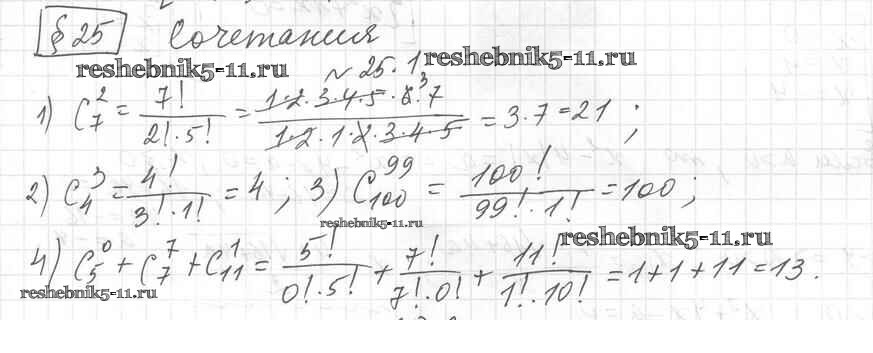 § 25 Сочетания
reshebnik5-11.ru reshebnik5-11.ru
№ 25.1
1) C₇² = 7! / (2! · 5!) = (1·2·3·4·5·6³·7) / (1·2·1·2·3·4·5) = 3·7 = 21 ;
2) C₄³ = 4! / (3! · 1!) = 4 ; 3) C₁₀₀⁹⁹ = 100! / (99! · 1!) = 100 ;
reshebnik5-11.ru
reshebnik5-11.ru
4) C₅⁰ + C₇⁷ + C₁₁¹ = 5! / (0! · 5!) + 7! / (7! · 0!) + 11! / (1! · 10!) = 1 + 1 + 11 = 13 .
reshebnik5-11.ru